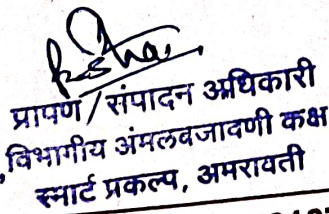 प्रापण / संपादन अधिकारी
विभागीय अंमलबजादणी कक्ष
स्मार्ट प्रकल्प, अमरावती